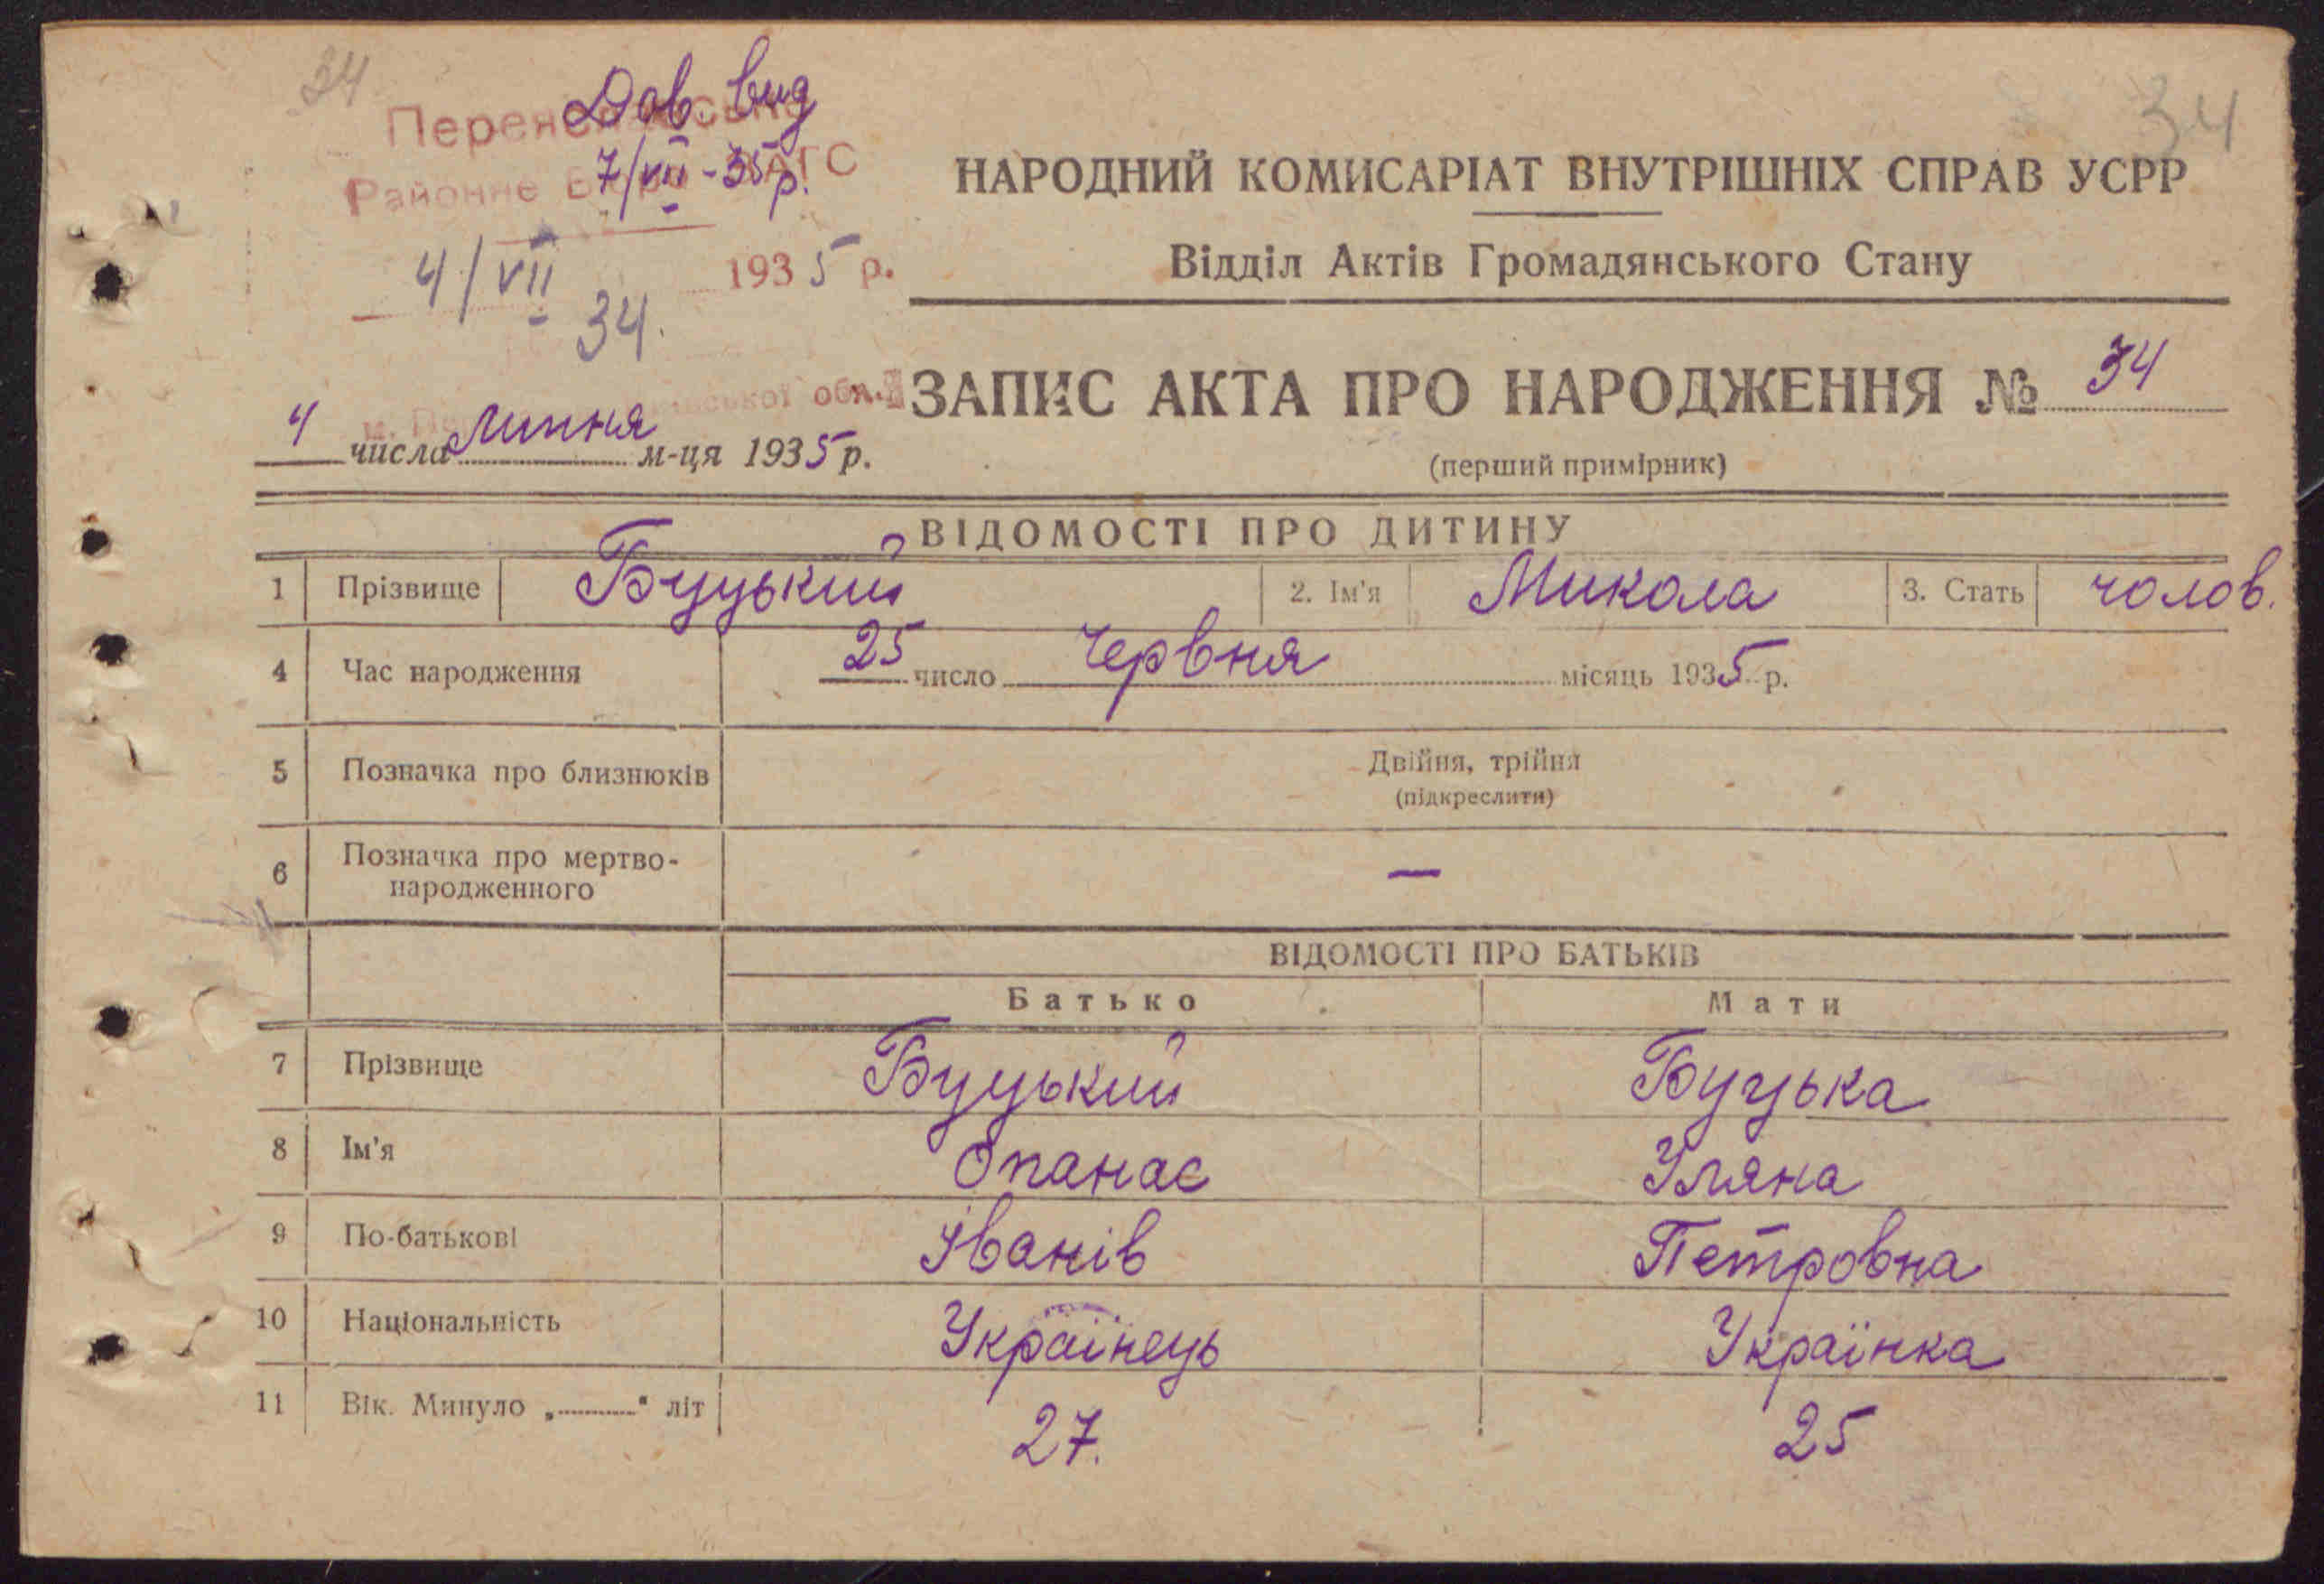 34
Дов. вид
7/VII-35 р.
Районне ЗАГС
4/VII 1935 р.
34.
34
НАРОДНИЙ КОМИСАРІАТ ВНУТРІШНІХ СПРАВ УСРР
Відділ Актів Громадянського Стану
ЗАПИС АКТА ПРО НАРОДЖЕННЯ № 34
(перший примірник)
обл.
4 числа Липня м-ця 1935 р.
ВІДОМОСТІ ПРО ДИТИНУ
1 Прізвище Буцький 2. Ім'я Микола 3. Стать чолов.
4 Час народження 25 число Червня місяць 1935 р.
5 Позначка про близнюків Двійня, трійня
(підкреслити)
6 Позначка про мертво-
народженного —
ВІДОМОСТІ ПРО БАТЬКІВ
Батько Мати
7 Прізвище Буцький Буцька
8 Ім'я Опанас Уляна
9 По-батькові Іванів Петровна
10 Національність Українець Українка
11 Вік. Минуло „ “ літ 27. 25